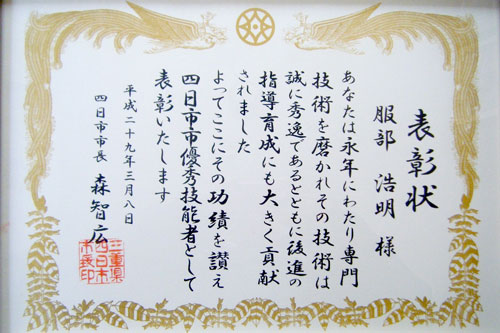 表彰状
服部 浩明 様
あなたは永年にわたり専門
技術を磨かれその技術は
誠に秀逸であるとともに後進の
指導育成にも大きく貢献
されました
よってここにその功績を讃え
四日市市優秀技能者として
表彰いたします
平成二十九年三月八日
四日市市長 森智広
三重県
四日市
市長印